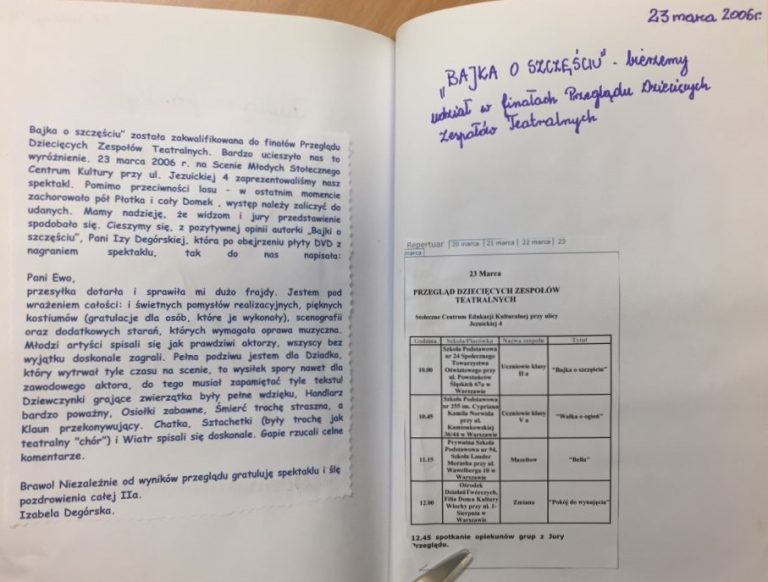 Bajka o szczęściu" została zakwalifikowana do finałów Przeglądu
Dziecięcych Zespołów Teatralnych. Bardzo ucieszyło nas to
wyróżnienie. 23 marca 2006 r. na Scenie Młodych Stołecznego
Centrum Kultury przy ul. Jezuickiej 4 zaprezentowaliśmy nasz
spektakl. Pomimo przeciwności losu - w ostatnim momencie
zachorowało pół Płotka i cały Domek , występ należy zaliczyć do
udanych. Mamy nadzieję, że widzom i jury przedstawienie
spodobało się. Cieszymy się, z pozytywnej opinii autorki „Bajki o
szczęściu", Pani Izy Degórskiej, która po obejrzeniu płyty DVD z
nagraniem spektaklu, tak do nas napisała:
Pani Ewo,
przesyłka dotarła i sprawiła mi dużo frajdy. Jestem pod
wrażeniem całości: i świetnych pomysłów realizacyjnych, pięknych
kostiumów (gratulacje dla osób, które je wykonały), scenografii
oraz dodatkowych starań, których wymagała oprawa muzyczna.
Młodzi artyści spisali się jak prawdziwi aktorzy, wszyscy bez
wyjątku doskonale zagrali. Pełna podziwu jestem dla Dziadka,
który wytrwał tyle czasu na scenie, to wysiłek spory nawet dla
zawodowego aktora, do tego musiał zapamiętać tyle tekstu!
Dziewczynki grające zwierzątka były pełne wdzięku, Handlarz
bardzo poważny, Osiołki zabawne, Śmierć trochę straszna, a
Klaun przekonywujący. Chatka, Sztachetki (były trochę jak
teatralny "chór") i Wiatr spisali się doskonale. Gapie rzucali celne
komentarze.
Brawo! Niezależnie od wyników przeglądu gratuluję spektaklu i ślę
pozdrowienia całej IIa.
Izabela Degórska.
23 marca 2006r.
„BAJKA O SZCZĘŚCIU" - bierzemy
udział w finałach Przeglądu Dziecięcych
Zespołów Teatralnych
Repertuar | 20 marca | 21 marca | 22 marca | 23
marca |
23 Marca
PRZEGLĄD DZIECIĘCYCH ZESPOŁÓW
TEATRALNYCH
Stołeczne Centrum Edukacji Kulturalnej przy ulicy
Jezuickiej 4
Godzina Szkoła/Placówka Nazwa zespołu Tytuł
10.00 Szkoła Podstawowa
nr 24 Społecznego
Towarzystwa
Oświatowego przy
ul. Powstańców
Śląskich 67a w
Warszawie
Uczniowie klasy
II a
"Bajka o szczęściu"
10.45 Szkoła Podstawowa
nr 255 im. Cypriana
Kamila Norwida
przy ul.
Kamionkowskiej
36/44 w Warszawie
Uczniowie klasy
V a
"Walka o ogień"
11.15 Prywatna Szkoła
Podstawowa nr 94,
Szkoła Lauder
Morasha przy ul.
Wawelberga 10 w
Warszawie
Mazeltow
"Bella"
12.00 Ośrodek
DziałańTwórczych,
Filia Domu Kultury
Włochy przy ul. 1-
Sierpnia w
Warszawie
Zmiana
"Pokój do wynajęcia"
12.45 spotkanie opiekunów grup z Jury
Przeglądu.